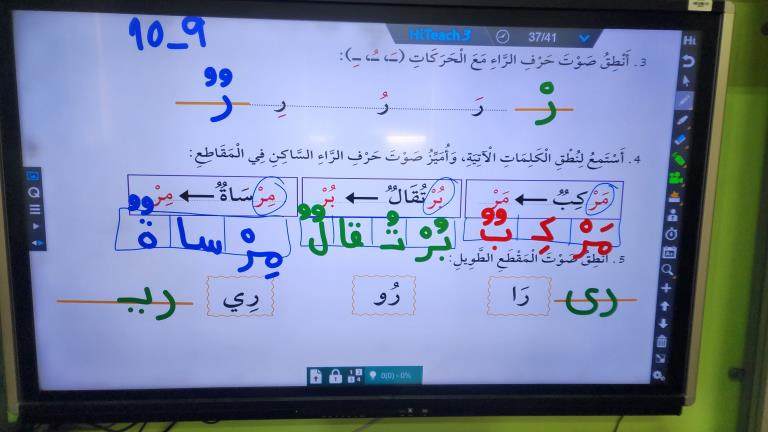 10-9
HiTeach 3 37/41
3. أَنْطِقُ صَوْتَ حَرْفِ الرَّاءِ مَعَ الْحَرَكَاتِ (ــَـ، ــُـ، ــِـ):
رْ رَ رُ رِ رٌ
4. أَسْتَمِعُ لِنُطْقِ الْكَلِمَاتِ الْآتِيَةِ، وَأُمَيِّزُ صَوْتَ حَرْفِ الرَّاءِ السَّاكِنِ فِي الْمَقَاطِعِ:
مَرْكِبٌ ← مَرْ بُرْتُقَالٌ ← بُرْ مِرْسَاةٌ ← مِرْ
مَرْ كِـ بٌ بُرْ تُـ قا لٌ مِرْ سا ةٌ
5. أَنْطِقُ صَوْتَ الْمَقْطَعِ الطَّوِيلِ:
رى رَا رُو رِي ريـ
0(0) - 0%